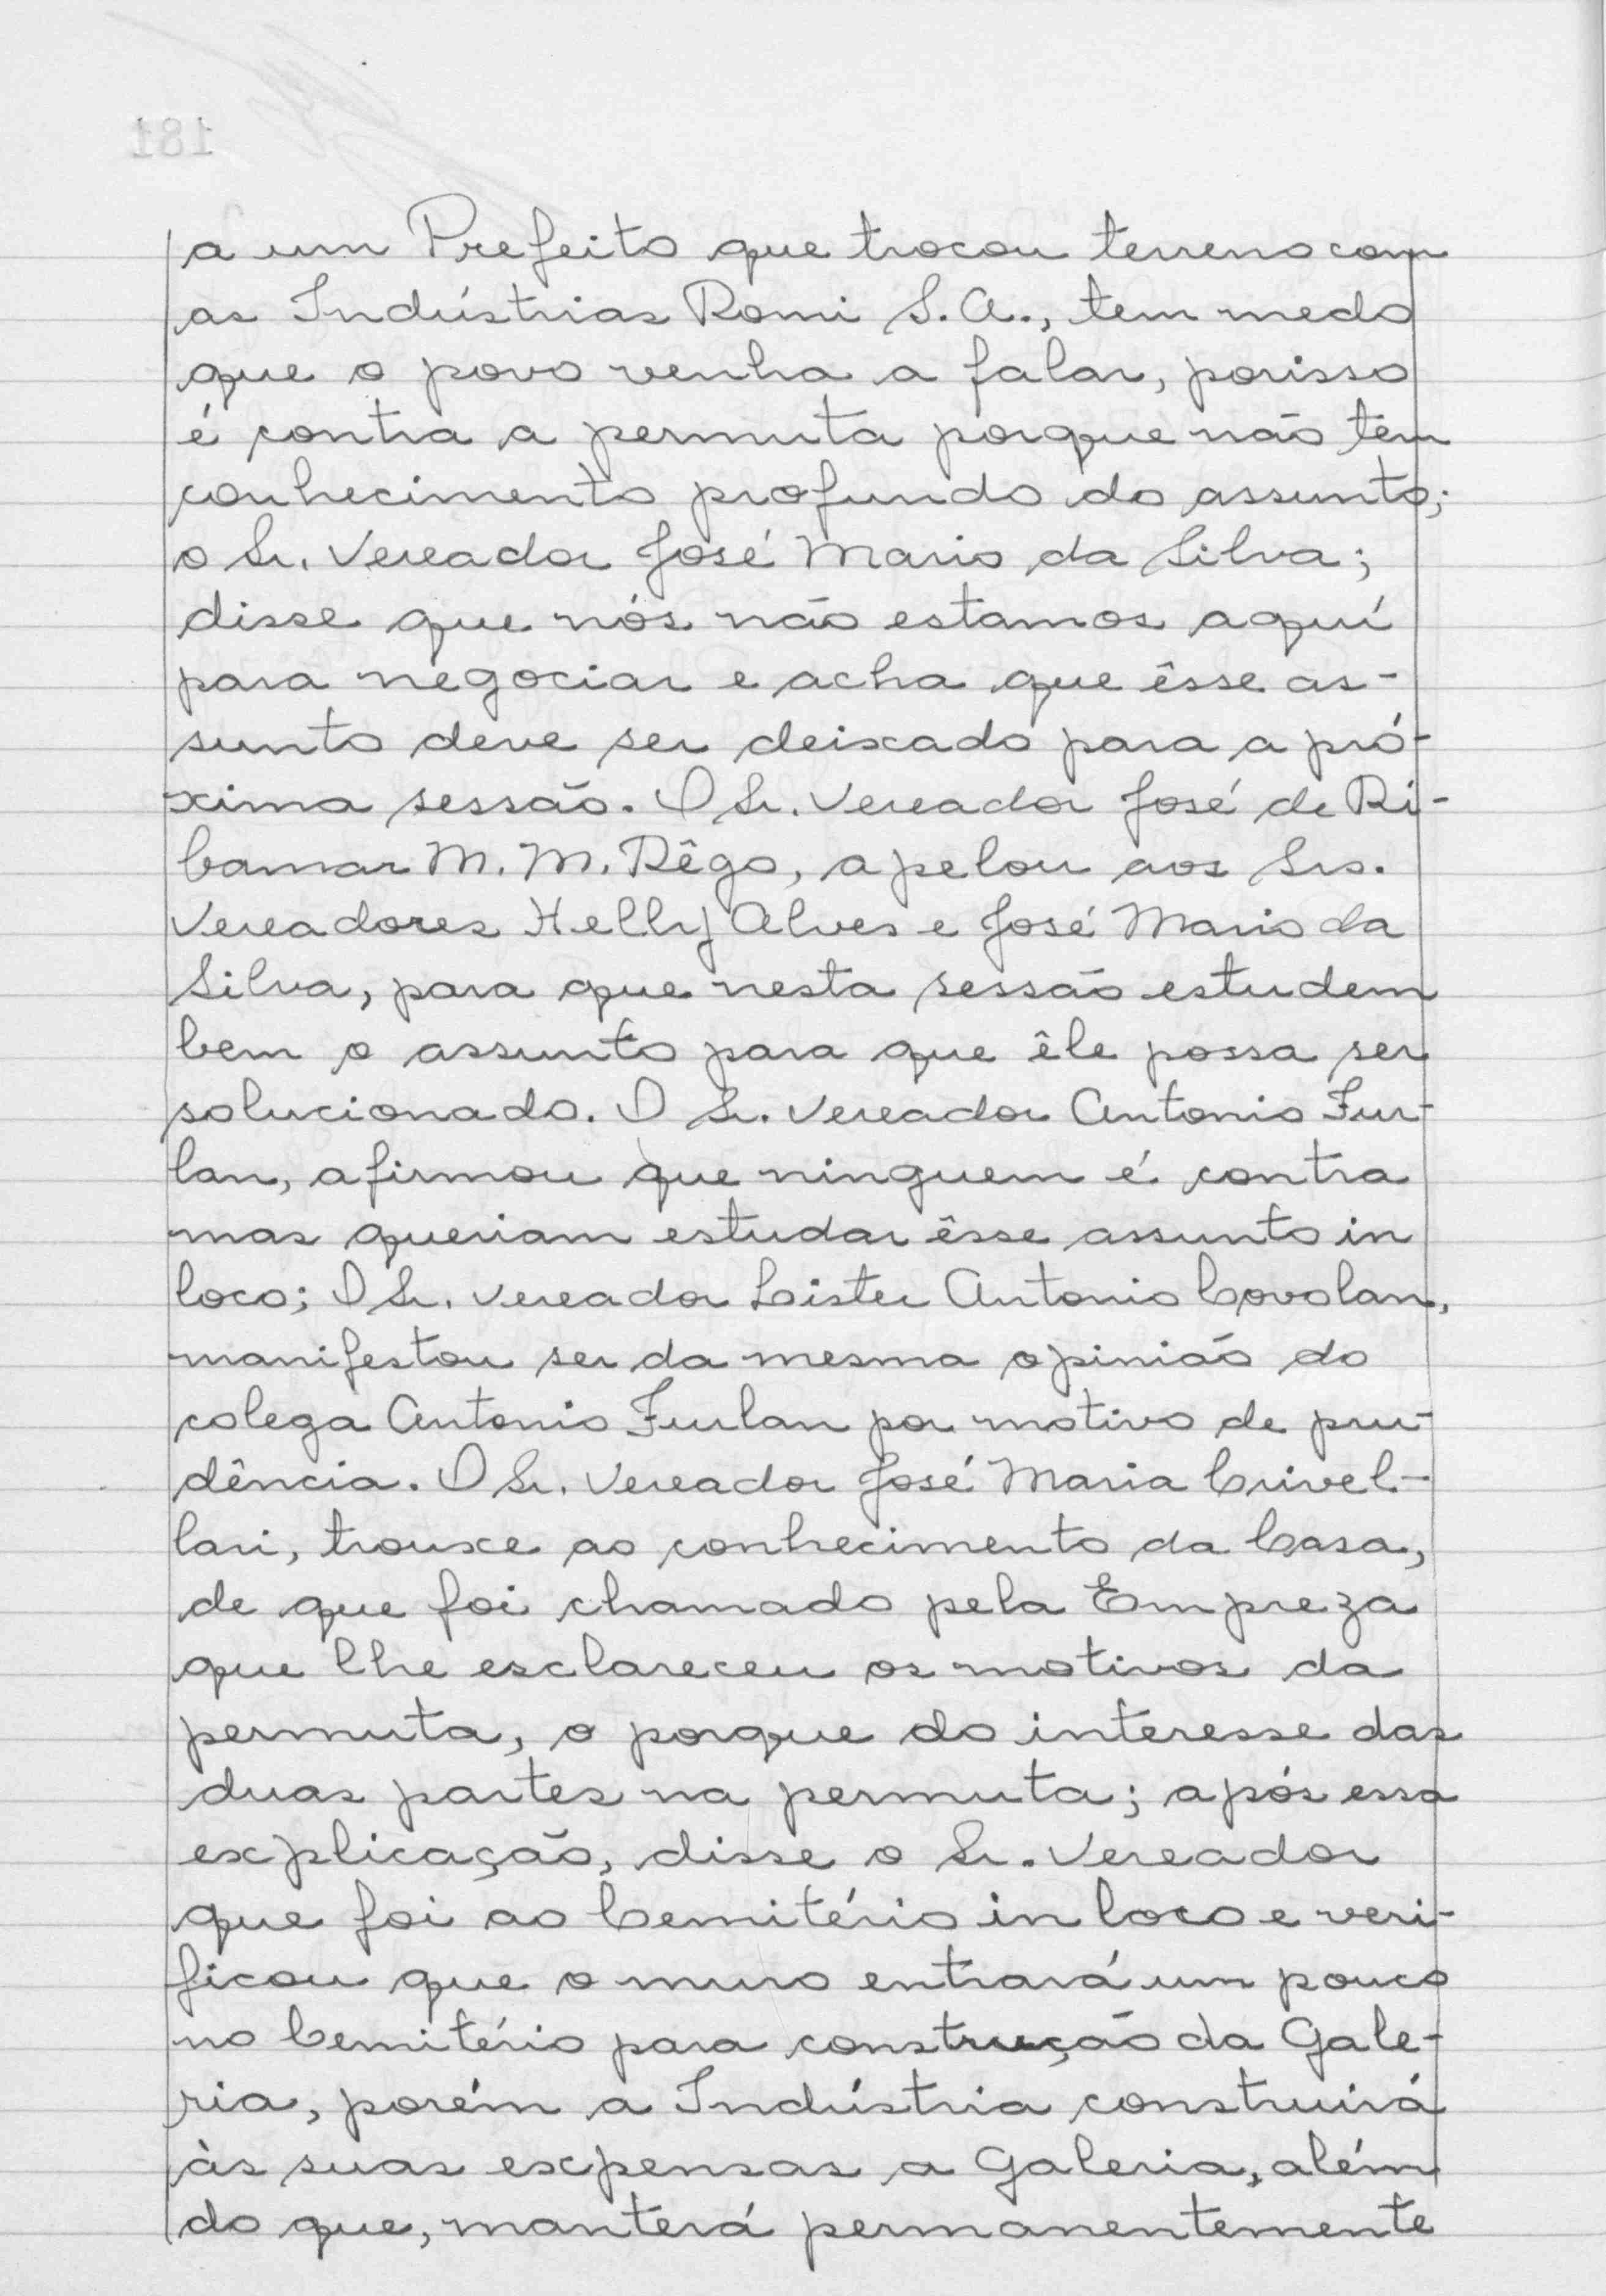 181
a um Prefeito que trocou terreno com
as Indústrias Romi S.A., tem medo
que o povo venha a falar, porisso
é contra a permuta porque não tem
conhecimento profundo do assunto;
o Sr. Vereador José Mario da Silva;
disse que nós não estamos aquí
para negociar e acha que êsse as-
sunto deve ser deixado para a pró-
xima sessão. O Sr. Vereador José de Ri-
bamar M. M. Rêgo, apelou aos Srs.
Vereadores Helly Alves e José Mario da
Silva, para que nesta sessão estudem
bem o assunto para que êle possa ser
solucionado. O Sr. Vereador Antonio Fur-
lan, afirmou que ninguem é contra
mas queriam estudar êsse assunto in
loco; O Sr. Vereador Lister Antonio Covolan,
manifestou ser da mesma opinião do
colega Antonio Furlan por motivo de pru-
dência. O Sr. Vereador José Maria Crivel-
lari, trouxe ao conhecimento da Casa,
de que foi chamado pela Empreza
que lhe esclareceu os motivos da
permuta, o porque do interesse das
duas partes na permuta; após essa
explicação, disse o Sr. Vereador
que foi ao Cemitério in loco e veri-
ficou que o muro entrará um pouco
no Cemitério para construção da Gale-
ria, porém a Indústria construirá
às suas expensas a Galeria, além
do que, manterá permanentemente